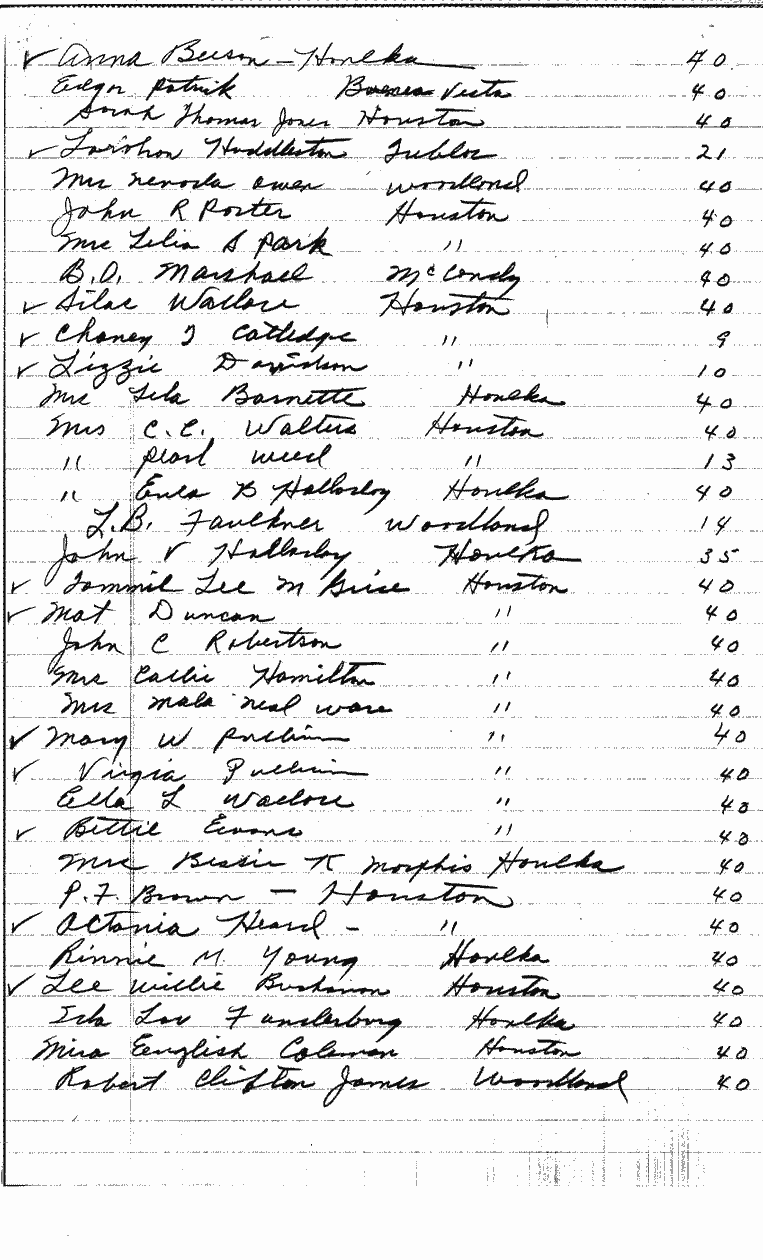 ✓ Anna Beeson - Houlka 40
Edgar Patrik Buena Vista 40
Sarah Thomas Jones Houston 40
✓ Huddleston 21
Mrs Nevada Owen Woodland 40
John R Porter Houston 40
Mrs Lelia S Park " 40
B.D. Marshall McCondy 40
✓ Silas Wallace Houston 40
✓ Chaney T Catledge " 9
✓ Lizzie Davidson " 10
Mrs Lela Barnette Houlka 40
Mrs C.C. Walters Houston 40
" Pearl Weed " 13
" Eula B Hallosloy Houlka 40
L.B. Faulkner Woodland 14
John V Hallosloy Houlka 35
✓ Tommie Lee Houston 40
✓ Mat Duncan " 40
John C Robertson " 40
Mrs Callie Hamilton " 40
Mrs Neal Ware " 40
✓ Mary W Pulliam " 40
✓ Virgia Pulliam " 40
Ella L Wallace " 40
✓ Bettie Evans " 40
Mrs Bessie K Morphis Houlka 40
P.F. Brown - Houston 40
✓ Octavia Heard - " 40
Rinnie M. Young Houlka 40
✓ Lee Willie Buchanan Houston 40
Ida Lou Funderburg Houlka 40
Miss Eenglish Coleman Houston 40
Robert Clifton James Woodland 40